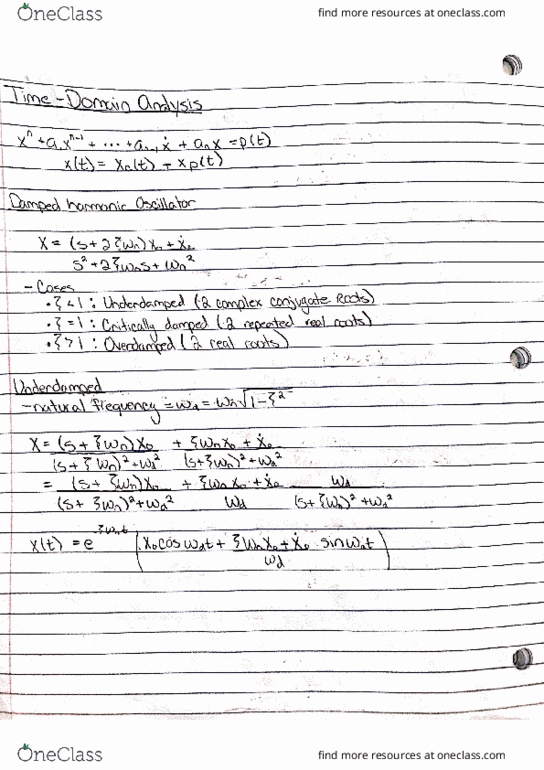 OneClass find more resources at oneclass.com
Time-Domain Analysis
xⁿ + a₁xⁿ⁻¹ + ... + aₙ₋₁ẋ + aₙx = p(t)
x(t) = xₙ(t) + xp(t)
Damped harmonic Oscillator
X = (s + 2ξωn)x₀ + ẋ₀
s² + 2ξωns + ωn²
- Cases
• ξ < 1 : Underdamped (2 complex conjugate roots)
• ξ = 1 : Critically damped (2 repeated real roots)
• ξ > 1 : Overdamped (2 real roots)
Underdamped
- natural frequency = ωd = ωn√1-ξ²
X = (s + ξωn)x₀ + ξωnx₀ + ẋ₀
(s + ξωn)² + ωd² (s + ξωn)² + ωd²
= (s + ξωn)x₀ + ξωnx₀ + ẋ₀ ωd
(s + ξωn)² + ωd² ωd (s + ξωn)² + ωd²
x(t) = e^-ξωnt (x₀cosωdt + ξωnx₀ + ẋ₀ sinωdt)
ωd
OneClass find more resources at oneclass.com